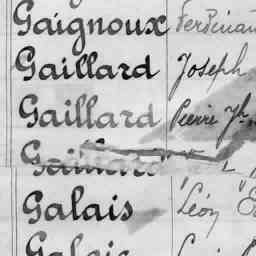 Gaignoux Ferdinan
Gaillard Joseph
Gaillard Pierre Jh
Gaillard
Galais Léon
Galais